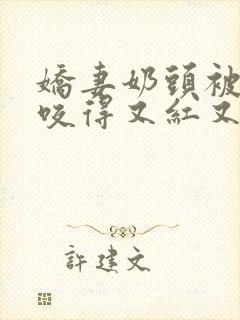 嬌妻奶頭被
咬得又紅又
許建文